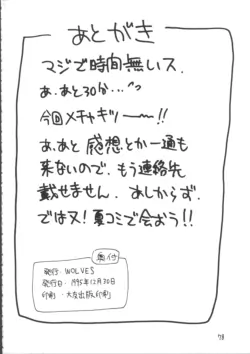 あとがき
マジで時間無いス.
あ、あと30分...
今回メチャキツーーー!!
あ、あと 感想とか一通も
来ないので、もう連絡先
載せません. あしからず.
では又!夏コミで会おう!!
奥付
発行・WOLVES
発行日・1995年12月30日
印刷・大友出版印刷
78